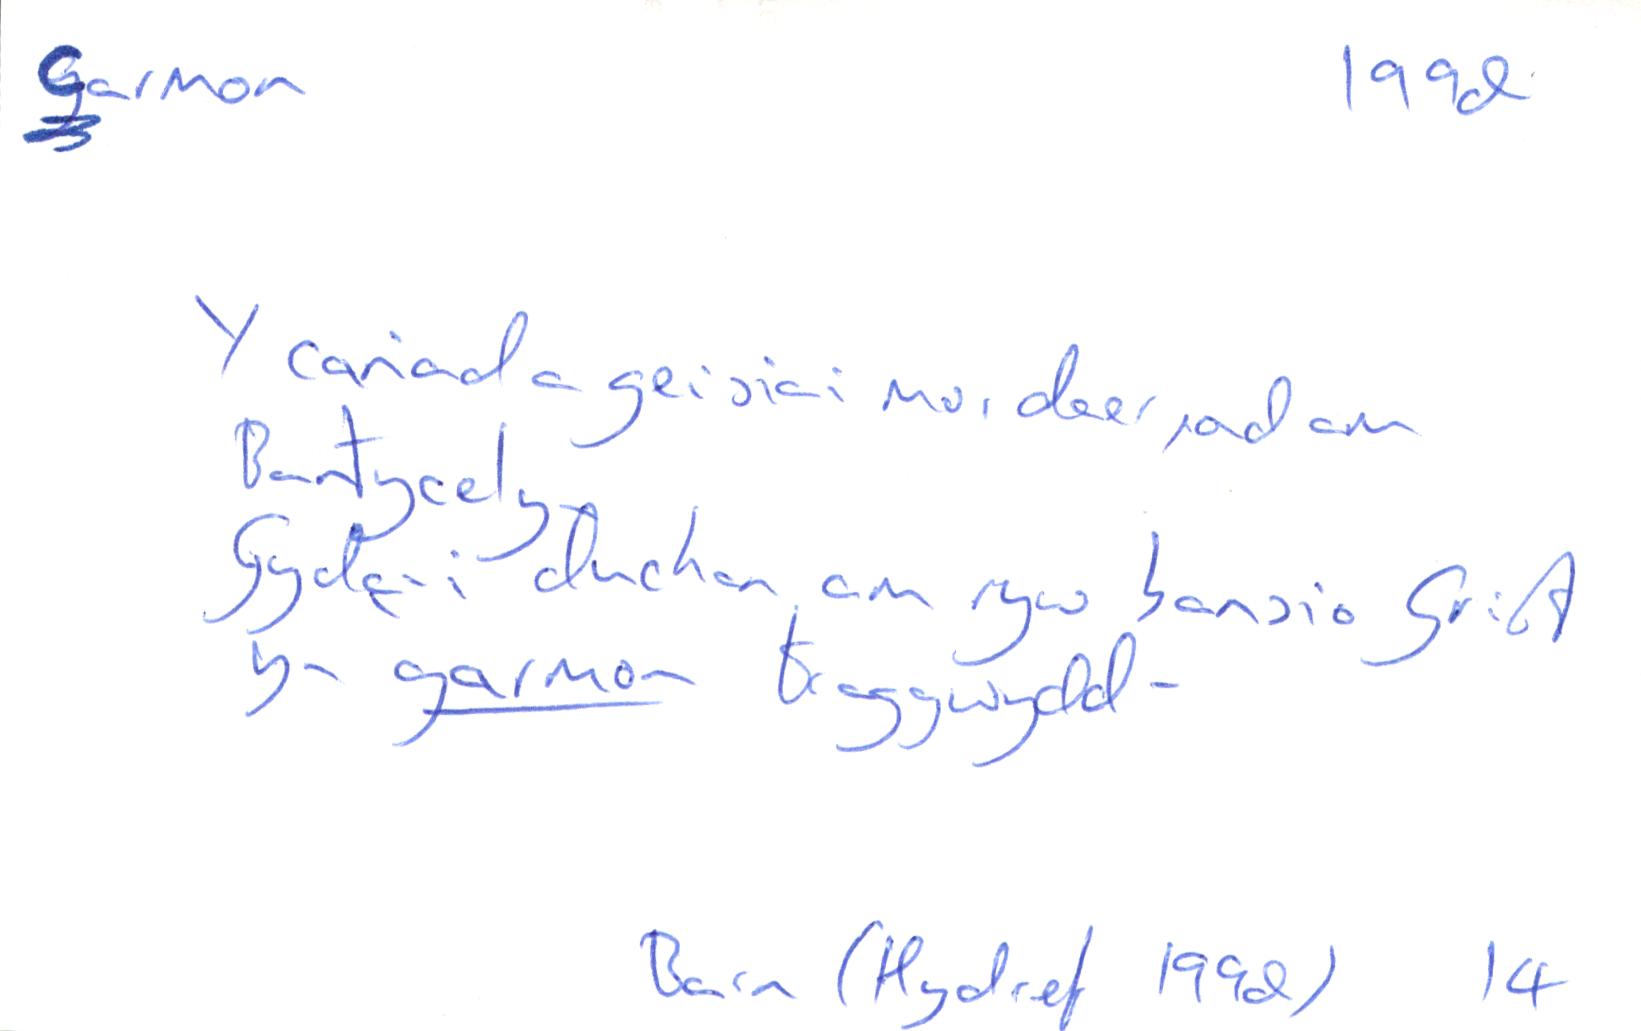 Garmon 1992
Y cariad a geisiai mor daer, ond am
Bantycelyn
Gydag i duchan am ryw bansio Grift
yn garmon tragywydd -
Barn (Hydref 1992) 14